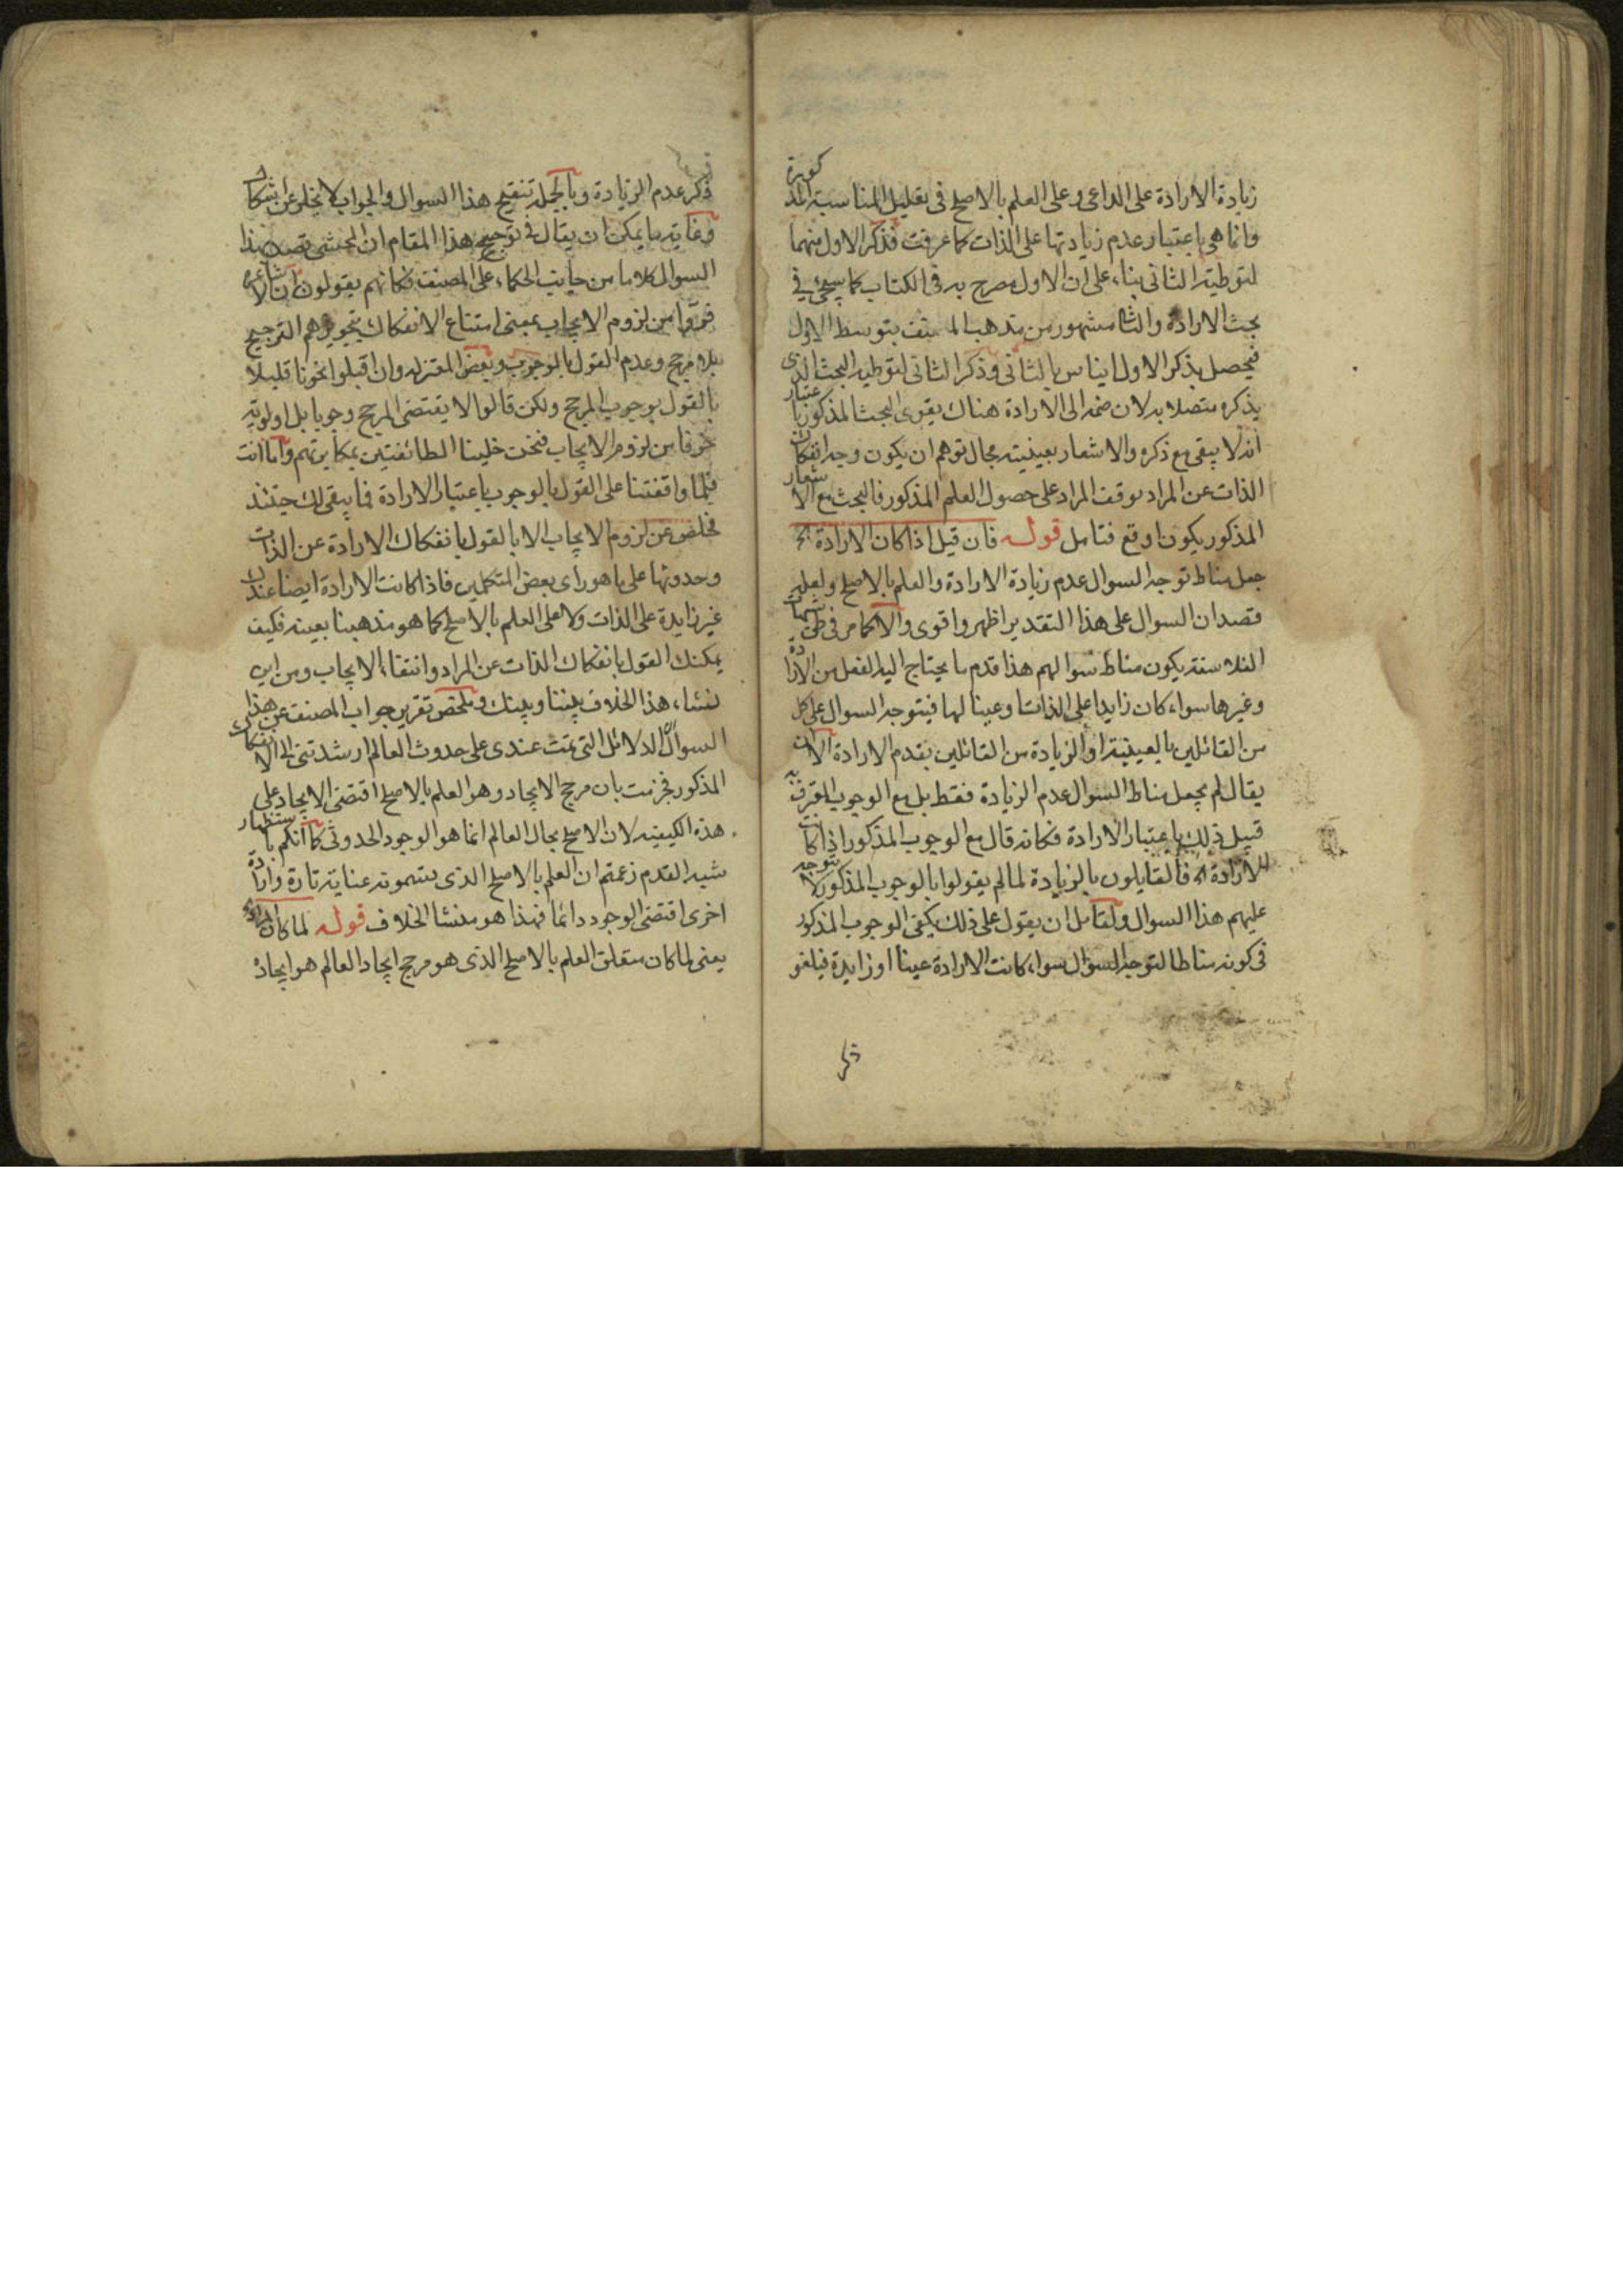 زيادة الارادة على الداعى وعلى العلم بالاصلح فى تعليل المناسبة المذكورة
وانما هى باعتبار عدم زيادتها على الذات كما عرفت فذكر الاول منهما
لتوطئة الثانى بناء على ان الاول مصرح به فى الكتاب كما سيجئ فى
بحث الارادة والثا مشهور من مذهب المصنف بتوسط الاول
فيحصل بذكر الاول ايناس بالثانى وذكر الثانى لتوطية البحث الذى
يذكره متصلا به لان ضمه الى الارادة هناك يقوى البحث المذكور باعتبار
انه لا يبقى مع ذكره والاشعار بعينيته مجال توهم ان يكون وجه انفكاك
الذات عن المراد توقف المراد على حصول العلم المذكور فالبحث مع الاشعار
المذكور يكون اوقع فتامل قوله فان قيل اذا كان الارادة الخ
جعل مناط توجه السوال عدم زيادة الارادة والعلم بالاصلح ولعله
قصد ان السوال على هذا التقدير اظهر واقوى والا كما مر فى شبهات
الفلاسفة يكون مناط سوالهم هذا قدم ما يحتاج اليه الفعل من الارادة
وغيرها سواء كان زايدا على الذات او عينا لها فيتوجه السوال على كل
من القائلين بالعينية او الزيادة من القائلين بقدم الارادة الا ان
يقال لم يجعل مناط السوال عدم الزيادة فقط بل مع الوجوب المعترف به
قبيل ذلك باعتبار الارادة فكانه قال مع الوجوب المذكور اذا كانت
الارادة اه فالقايلون بالزيادة لما لم يقولوا بالوجوب المذكور لا يتوجه
عليهم هذا السوال ولقائل ان يقول على ذلك يكفى الوجوب المذكور
فى كونه مناطا لتوجه السؤال سواء كانت الارادة عينا او زايدة فيلغو
ذكر
ذكر عدم الزيادة وبالجملة تنقيح هذا السوال والجواب لا يخلو عن اشكال
وغاية ما يمكن ان يقال فى توجيه هذا المقام ان المحشى قصد بهذا
السوال كلاما من جانب الحكماء على المصنف فكانهم يقولون ان الاشاعرة
فروا من لزوم الايجاب بمعنى امتناع الانفكاك بتجويزهم الترجيح
بلا مرجح وعدم القول بالوجوب وبعض المعتزلة وان اقبلوا نحونا قليلا
بالقول بوجوب المرجح ولكن قالوا لا يقتضى المرجح وجوبا بل اولوية
خوفا من لزوم الايجاب فنحن خلينا الطائفتين بمكابرتهم واما انت
فلما وافقتنا على القول بالوجوب باعتبار الارادة فما يبقى لك حينئذ
مخلص عن لزوم الايجاب الا بالقول بانفكاك الارادة عن الذات
وحدوثها على ما هو راى بعض المتكلمين فاذا كانت الارادة ايضا عندك
غير زايدة على الذات ولا على العلم بالاصلح كما هو مذهبنا بعينه فكيف
يمكنك القول بانفكاك الذات عن المراد وانتفاء الايجاب ومن اين
نشاء هذا الخلاف بيننا وبينك وملخص تقرير جواب المصنف عن هذا
السوال الدلائل التى تمت عندى على حدوث العالم ارشدتنى الى الانفكاك
المذكور فجزمت بان مرجح الايجاد وهو العلم بالاصلح اقتضى الايجاد على
هذه الكيفية لان الاصلح بحال العالم انما هو الوجود الحدوثى كما انكم باستظهار
شبه القدم زعمتم ان العلم بالاصلح الذى تسمونه عناية تارة وارادة
اخرى اقتضى الوجود دائما فهذا هو منشا الخلاف قوله لما كان
يعنى لما كان متعلق العلم بالاصلح الذى هو مرجح ايجاد العالم هو ايجاده